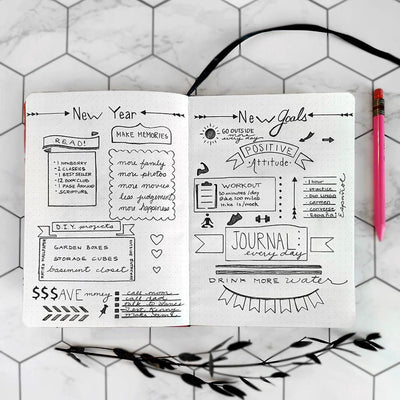 New Year
READ!
1 NEWBERY
2 CLASSICS
1 BEST SELLER
12 BOOK CLUB
1 PAGE AROUND
SCRIPTURE
MAKE MEMORIES
more family
more photos
more movies
less judgement
more happiness
D.I.Y. projects
GARDEN BOXES
STORAGE CUBES
basement closet
$$$AVE money
call mom
call dad
New Goals
GO OUTSIDE
more
every day
POSITIVE
Attitude
WORKOUT
10 minutes / day
Bike 100 miles
1 hour
practice
carmen
converse
Español
Español
JOURNAL:
every day
DRINK MORE water